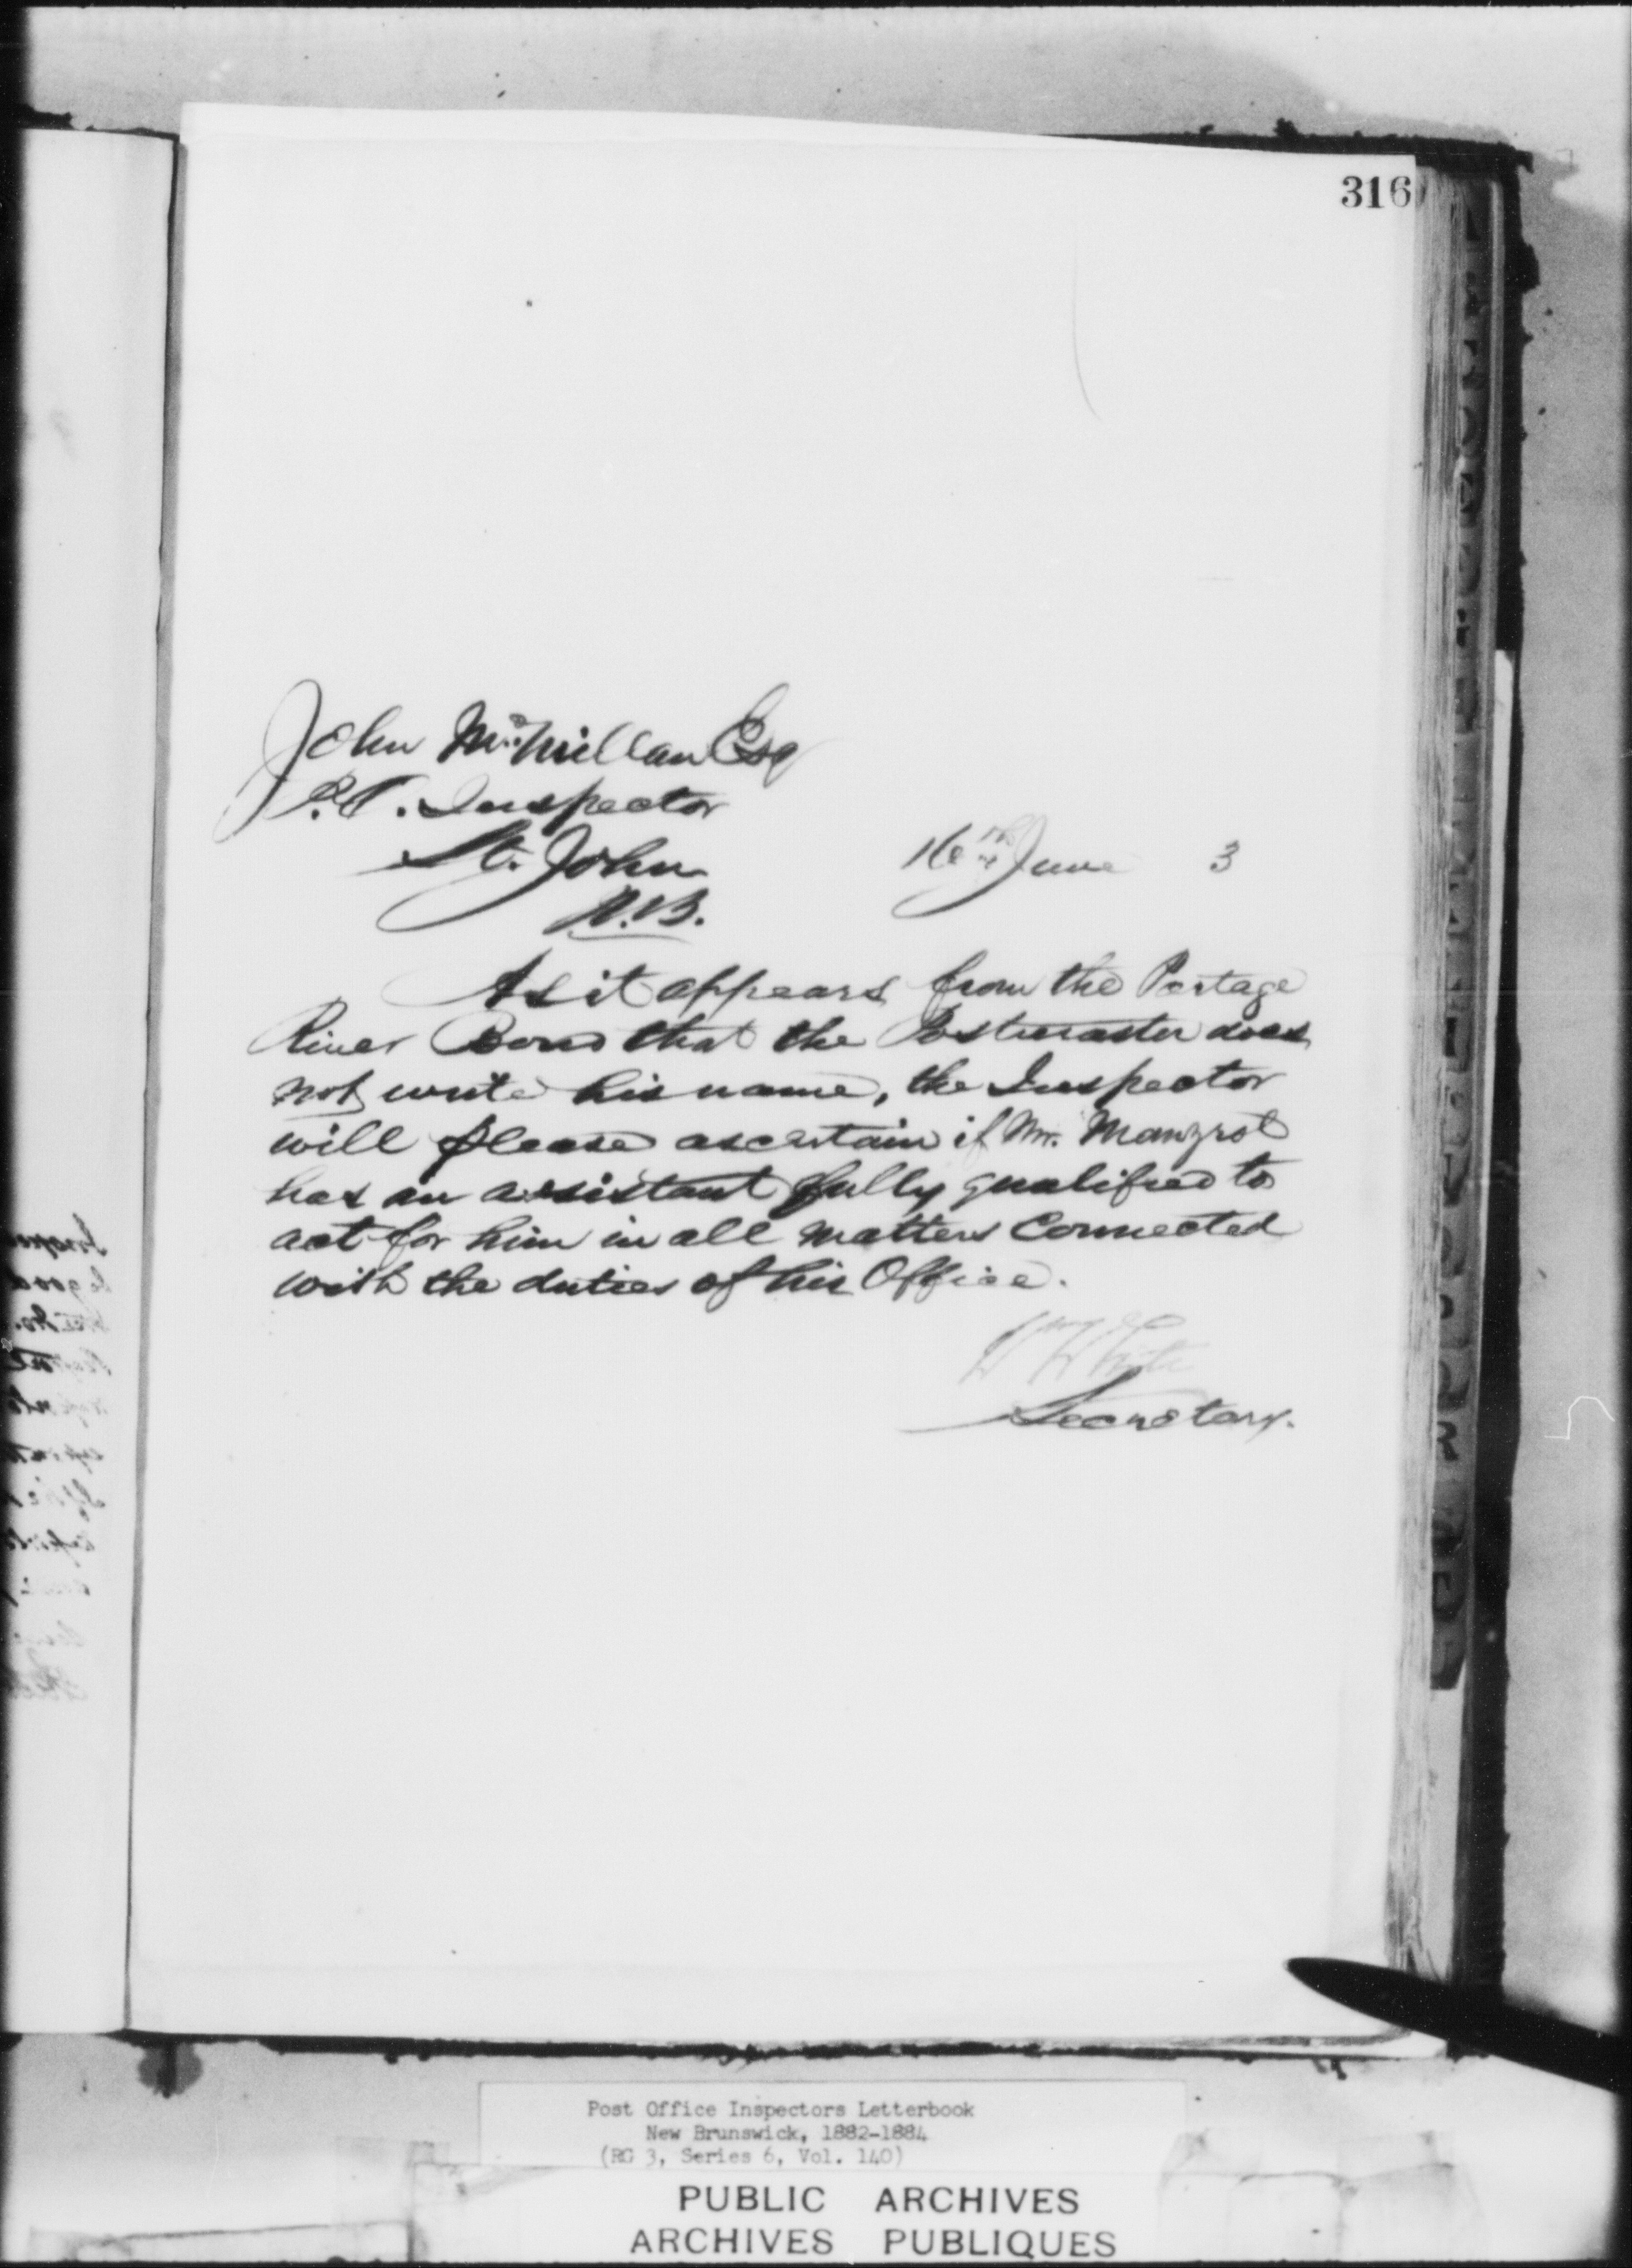 316
John McMillan Esq
P.O. Inspector
St. John
N.B.
16th June 3
As it appears from the Portage
River Bond that the Postmaster does
not write his name, the Inspector
will please ascertain if Mr.
has an assistant fully qualified to
act for him in all matters Connected
with the duties of his Office.
W White
Secretary.
Post Office Inspectors Letterbook
New Brunswick, 1882-1884
(RG 3, Series 6, Vol. 140)
PUBLIC ARCHIVES
ARCHIVES PUBLIQUES